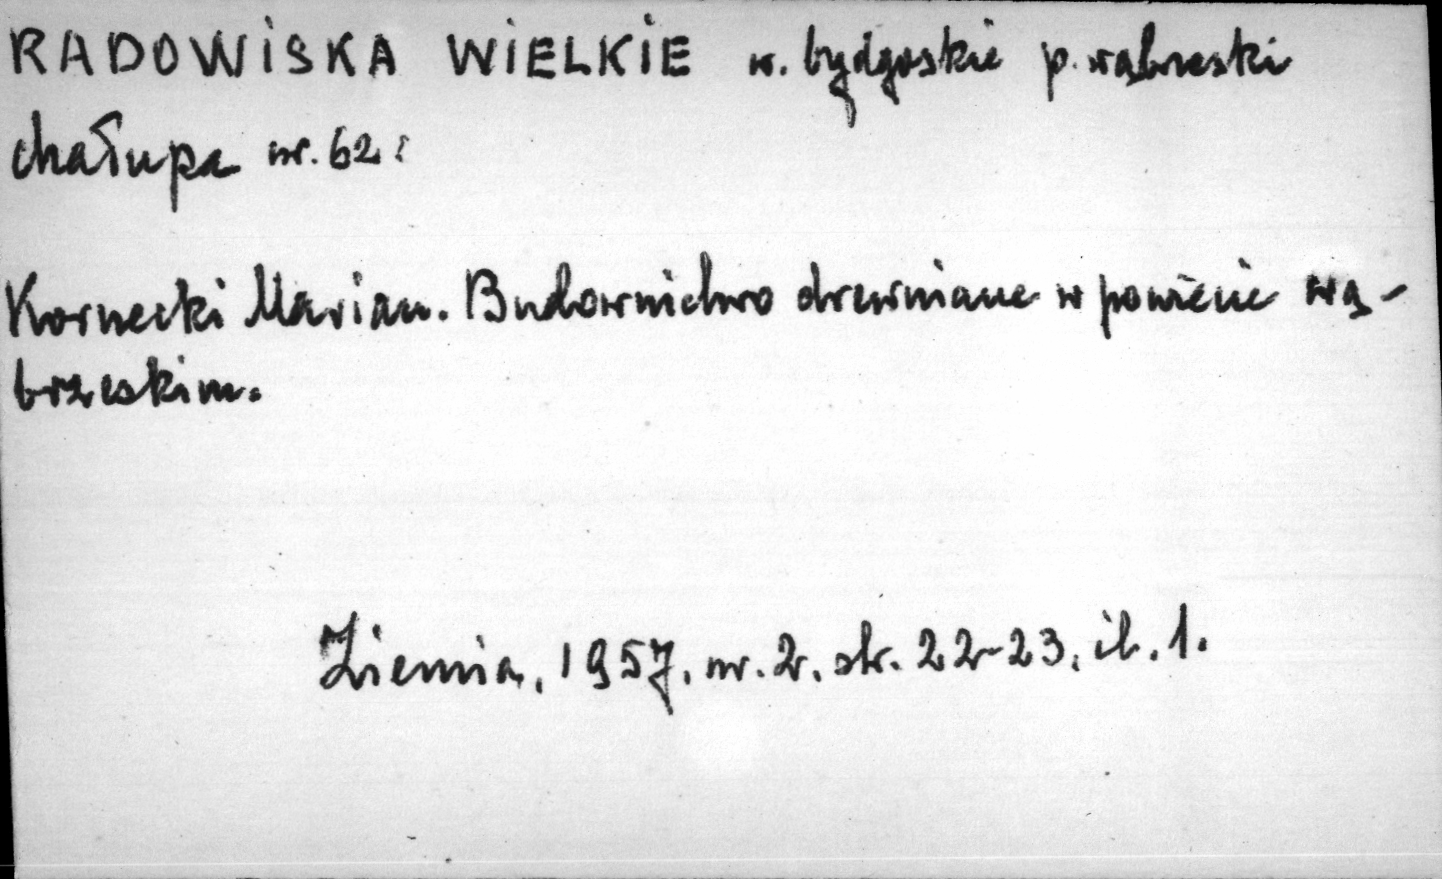 RADOWISKA WIELKIE w. bydgoskie p. wąbrzeski
chałupa nr. 62:
Kornecki Marian. Budownictwo drewniane w powiecie wą-
brzeskim.
Ziemia, 1957, nr. 2, str. 22-23, il. 1.